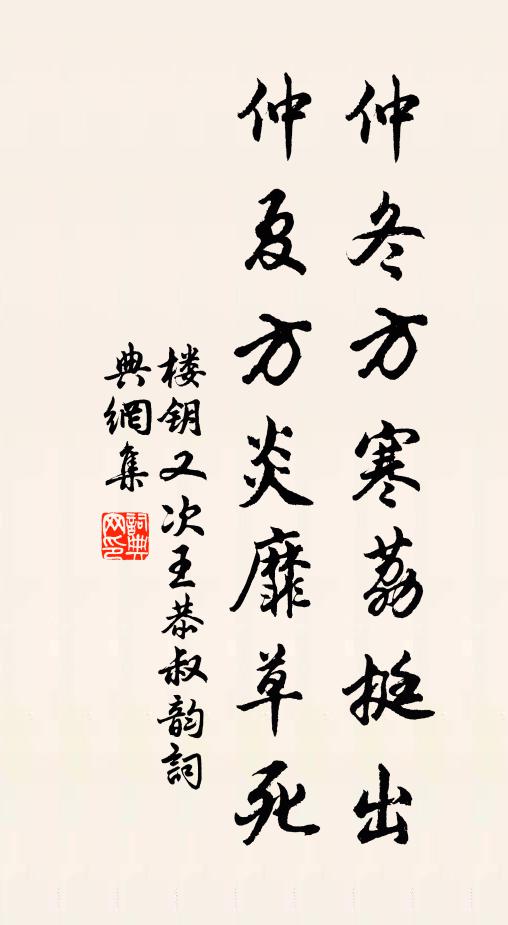 仲冬方寒荔挺出
仲夏方炎靡草死
楼钥又次王恭叔韵詞
典網集
詞典
网印